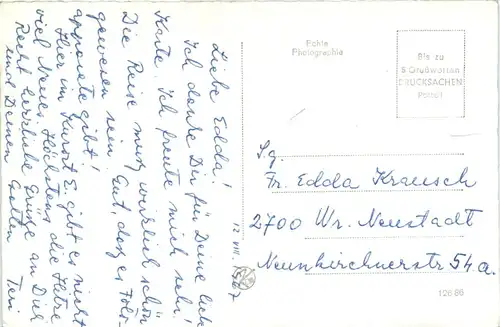 Liebe Edda!
Ich danke Dir für Deine lieb
Karte. Ich freute mich sehr!
Die Reise muß wirklich schön
gewesen sein. Gut, daß es Foto-
apparate gibt!
Hier im Kurort E. gibt es nicht
viel Neues. Höchstens die Hitze
Recht herzliche Grüße an Dich
und Deinen Gatten
12 VIII. 1967
Echte
Photographie
Bis zu
5 Grußworten
DRUCKSACHEN
Porto!!
S.g.
Fr. Edda Krausch
2700 Wr. Neustadt
Neunkirchnerstr. 54a.
126 86